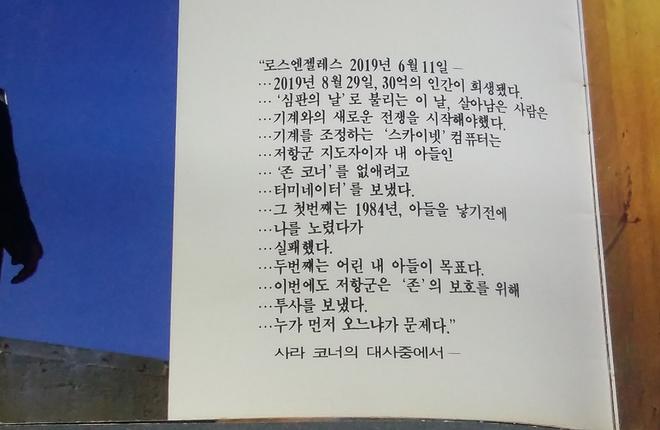 “로스엔젤레스 2019년 6월 11일 —
…2019년 8월 29일, 30억의 인간이 희생됐다.
… ‘심판의 날’로 불리는 이 날, 살아남은 사람은
…기계와의 새로운 전쟁을 시작해야했다.
…기계를 조정하는 ‘스카이넷’ 컴퓨터는
…저항군 지도자이자 내 아들인
… ‘존 코너’를 없애려고
…터미네이터’를 보냈다.
…그 첫번째는 1984년, 아들을 낳기전에
…나를 노렸다가
…실패했다.
…두번째는 어린 내 아들이 목표다.
…이번에도 저항군은 ‘존’의 보호를 위해
…투사를 보냈다.
…누가 먼저 오느냐가 문제다.”
사라 코너의 대사중에서 —